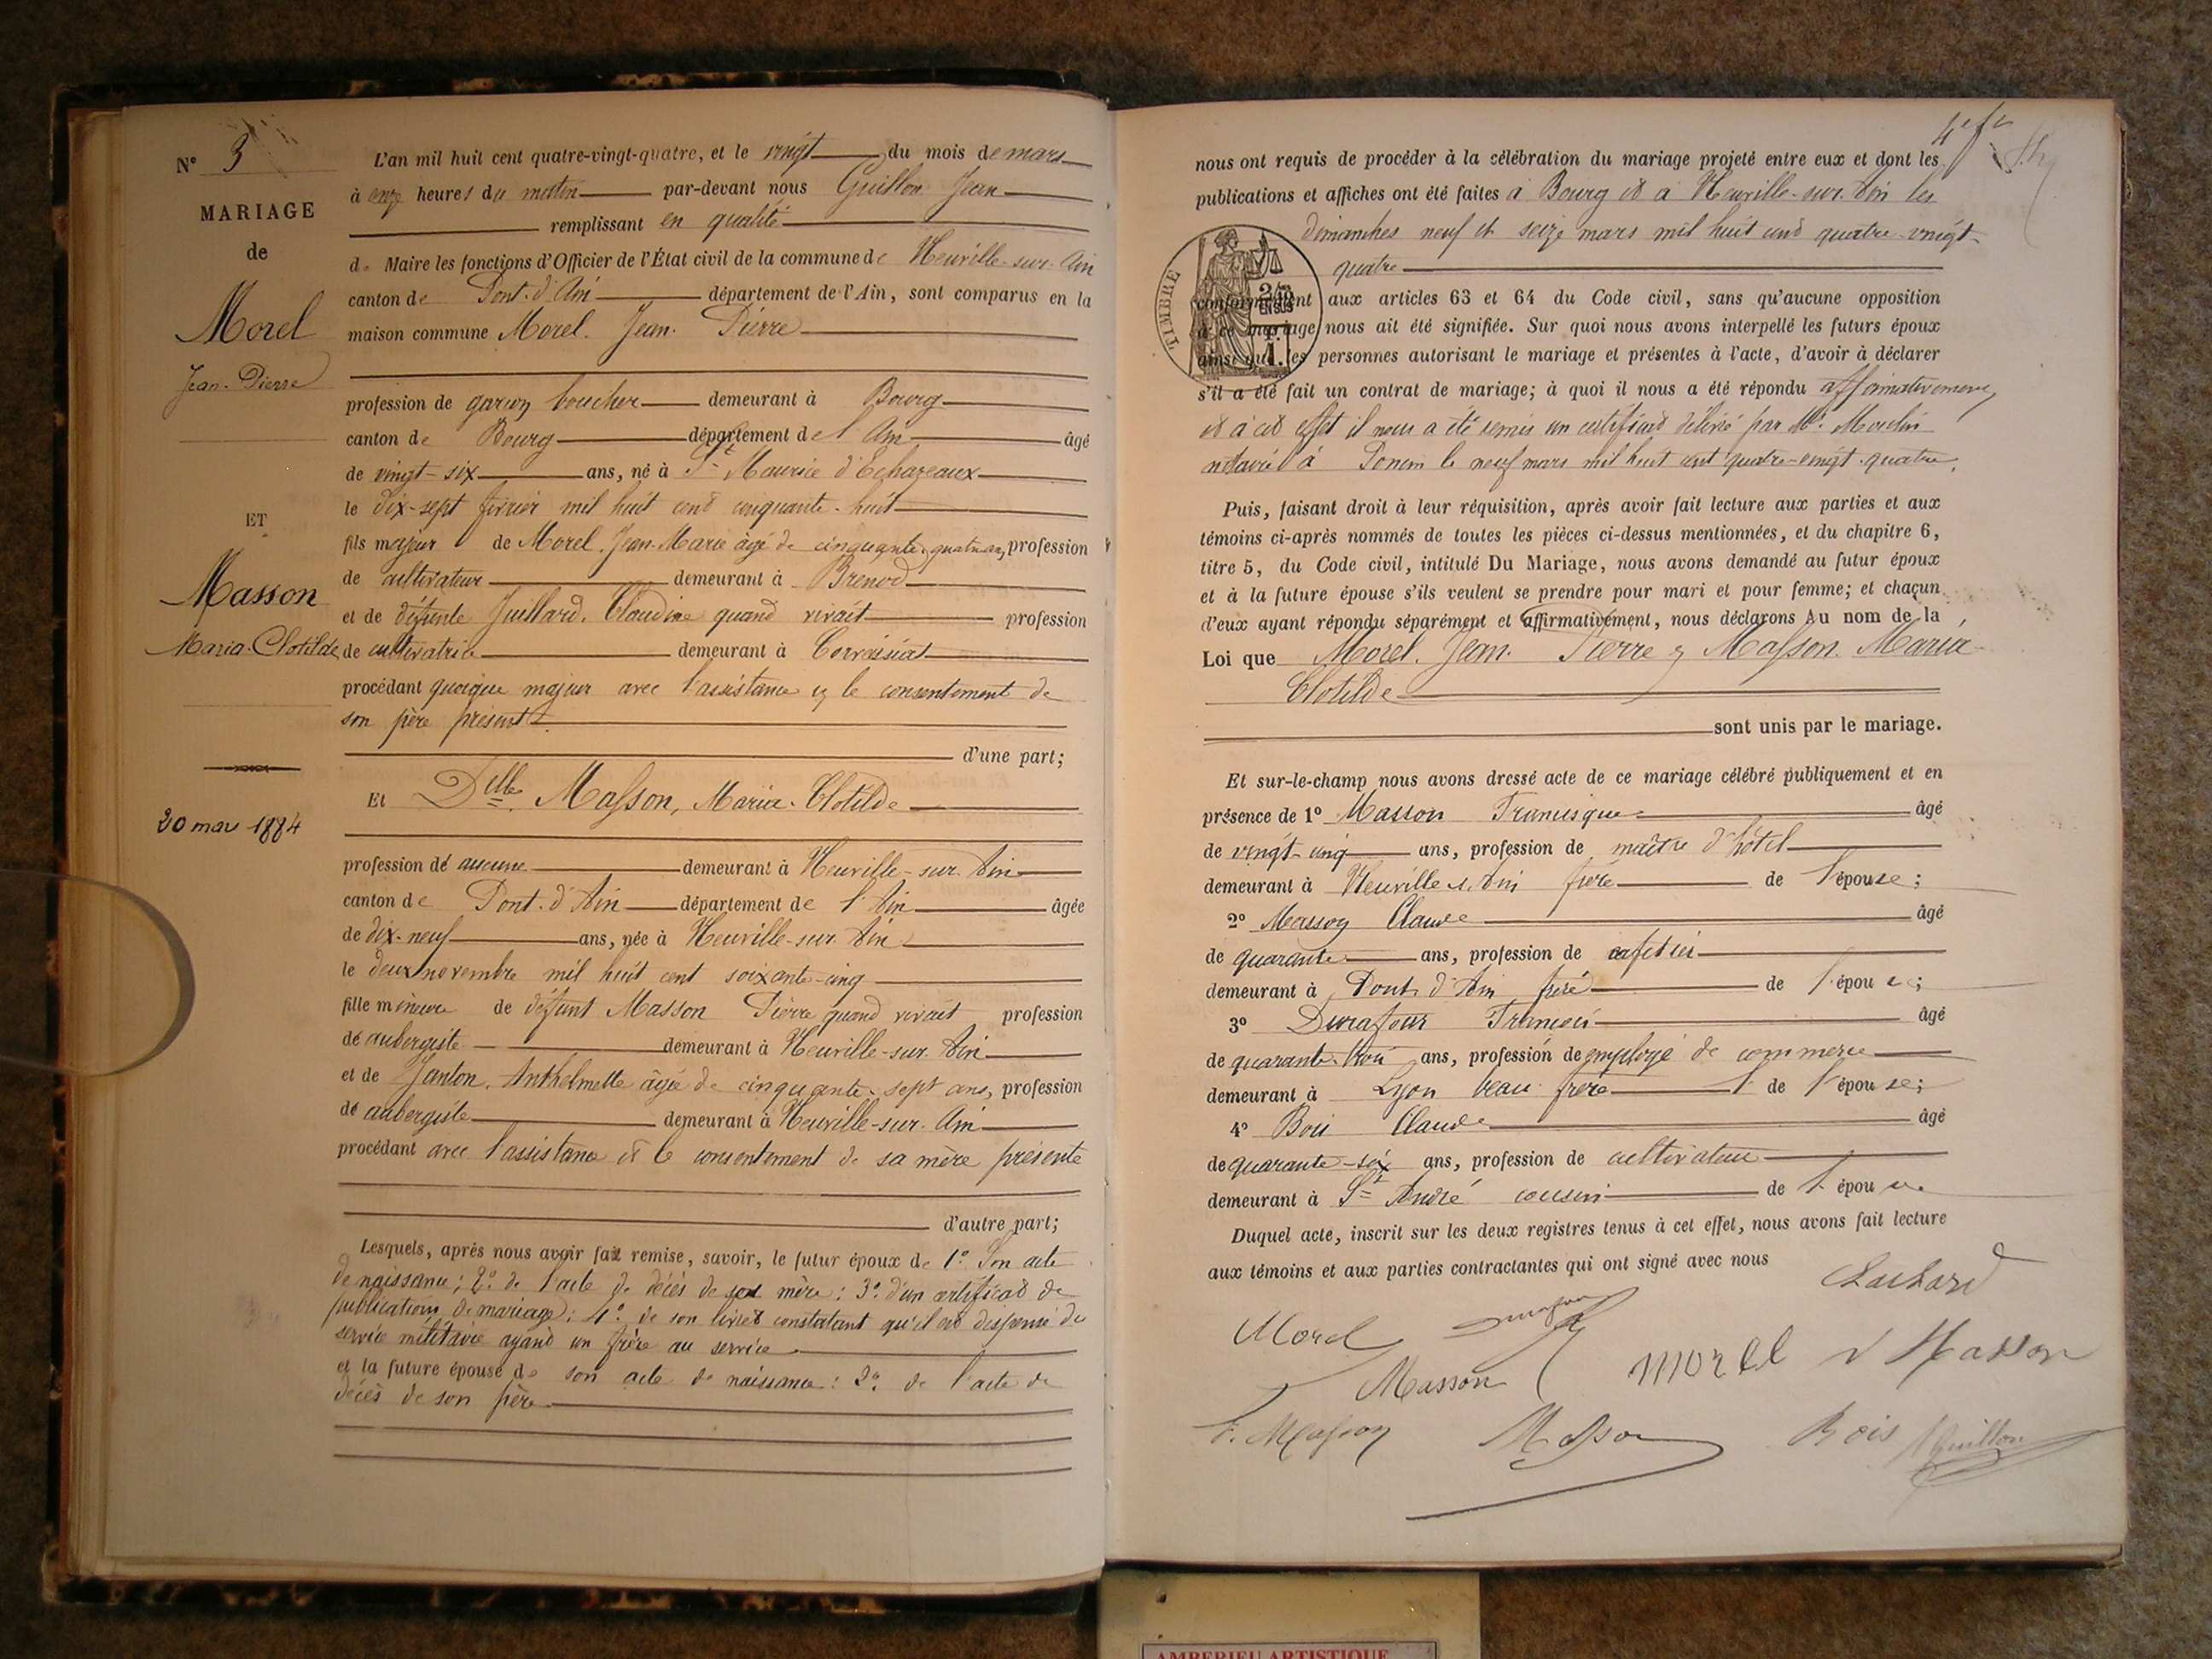 N° 3
MARIAGE
de
Morel
Jean-Pierre
ET
Masson
Maria-Clotilde
20 mars 1884
L'an mil huit cent quatre-vingt-quatre, et le vingt du mois de mars
à onze heures du matin par-devant nous Guillon Jean
remplissant en qualité
de Maire les fonctions d'Officier de l'État civil de la commune de Neuville-sur-Ain
canton de Pont-d'Ain département de l'Ain, sont comparus en la
maison commune Morel Jean-Pierre
profession de garçon boucher demeurant à Bourg
canton de Bourg département de l'Ain âgé
de vingt-six ans, né à St Maurice d'Echazeaux
le dix-sept février mil huit cent cinquante-huit
fils majeur de Morel, Jean-Marie âgé de cinquante-quatre ans, profession
de cultivateur demeurant à Brenod
et de défunte Juillard, Claudine quand vivait profession
de cultivatrice demeurant à Corveissiat
procédant quoique majeur avec l'assistance et le consentement de
son père présent
d'une part;
Et Dlle Masson, Maria-Clotilde
profession de aucune demeurant à Neuville-sur-Ain
canton de Pont-d'Ain département de l'Ain âgée
de dix-neuf ans, née à Neuville-sur-Ain
le deux novembre mil huit cent soixante-cinq
fille mineure de défunt Masson Pierre quand vivait profession
de aubergiste demeurant à Neuville-sur-Ain
et de Janton, Anthelmette âgée de cinquante-sept ans, profession
de aubergiste demeurant à Neuville-sur-Ain
procédant avec l'assistance et le consentement de sa mère présente
d'autre part;
Lesquels, après nous avoir fait remise, savoir, le futur époux de 1° Son acte
de naissance; 2° de l'acte de décès de sa mère: 3° d'un certificat de
publications de mariage: 4° de son livret constatant qu'il est dispensé du
service militaire ayant un frère au service
et la future épouse de son acte de naissance: 2° de l'acte de
décès de son père
nous ont requis de procéder à la célébration du mariage projeté entre eux et dont les
publications et affiches ont été faites à Bourg et à Neuville-sur-Ain les
dimanches neuf et seize mars mil huit cent quatre-vingt-
quatre
TIMBRE
conformément aux articles 63 et 64 du Code civil, sans qu'aucune opposition
à ce mariage nous ait été signifiée. Sur quoi nous avons interpellé les futurs époux
ainsi que les personnes autorisant le mariage et présentes à l'acte, d'avoir à déclarer
s'il a été fait un contrat de mariage; à quoi il nous a été répondu affirmativement
et à cet effet il nous a été remis un certificat délivré par Me Moulin
notaire à Poncin le neuf mars mil huit cent quatre-vingt-quatre.
Puis, faisant droit à leur réquisition, après avoir fait lecture aux parties et aux
témoins ci-après nommés de toutes les pièces ci-dessus mentionnées, et du chapitre 6,
titre 5, du Code civil, intitulé Du Mariage, nous avons demandé au futur époux
et à la future épouse s'ils veulent se prendre pour mari et pour femme; et chaçun
d'eux ayant répondu séparément et affirmativement, nous déclarons Au nom de la
Loi que Morel Jean-Pierre et Masson Maria-
Clotilde
sont unis par le mariage.
Et sur-le-champ nous avons dressé acte de ce mariage célébré publiquement et en
présence de 1° Masson Francisque âgé
de vingt-cinq ans, profession de maître d'hôtel
demeurant à Neuville s. Ain frère de l'épouse;
2° Masson Claude âgé
de quarante ans, profession de cafetier
demeurant à Pont d'Ain frère de l'épouse;
3° Durafour François âgé
de quarante-trois ans, profession de employé de commerce
demeurant à Lyon beau-frère de l'épouse;
4° Bois Claude âgé
de quarante-six ans, profession de cultivateur
demeurant à St André cousin de l'épouse
Duquel acte, inscrit sur les deux registres tenus à cet effet, nous avons fait lecture
aux témoins et aux parties contractantes qui ont signé avec nous
Morel
Masson
morel
Masson
F. Masson
Masson
Bois
Guillon
AMBERIEU ARTISTIQUE